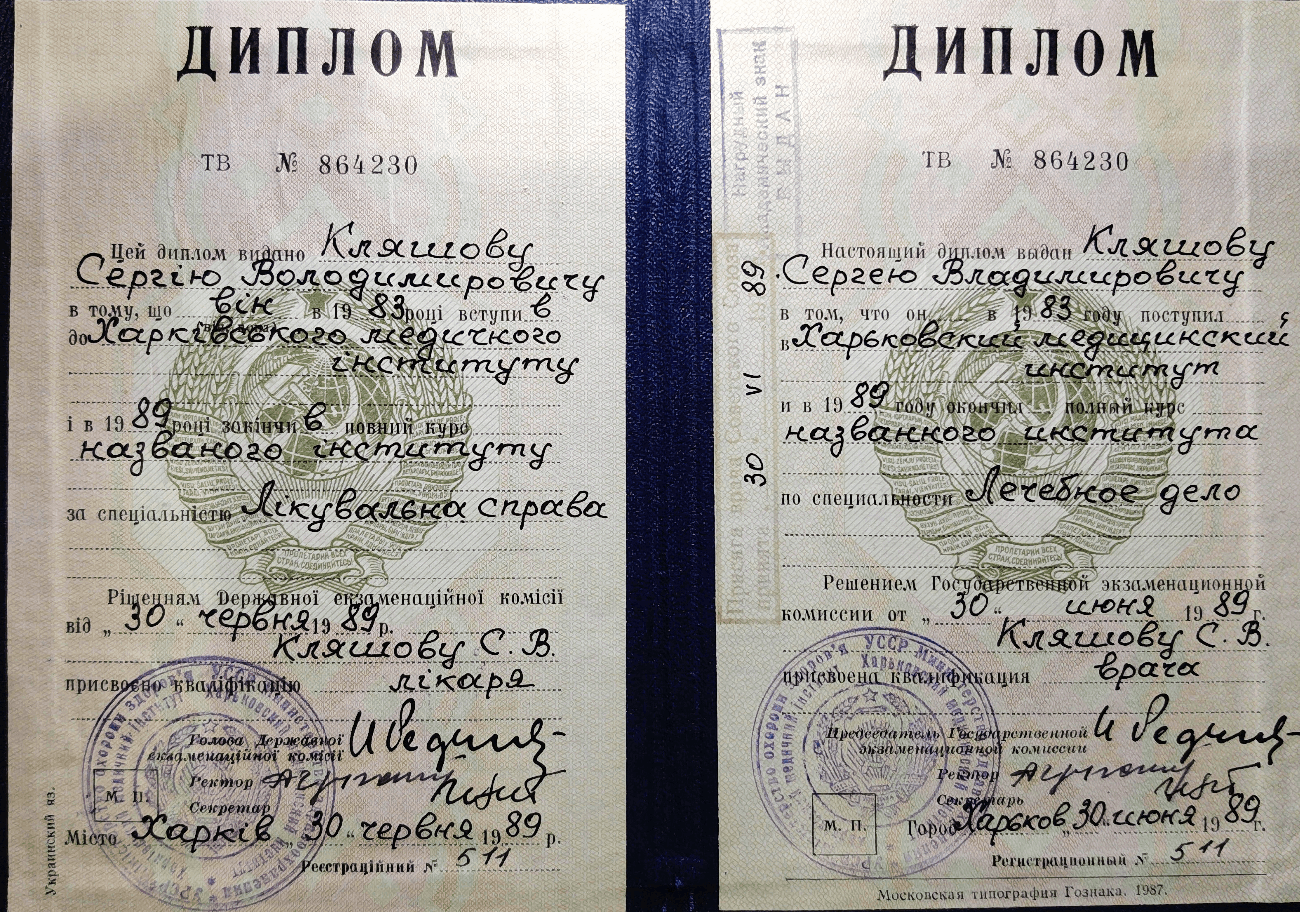 ДИПЛОМ
ТВ № 864230
Цей диплом видано Кляшову
Сергію Володимировичу
в тому, що він в 1983 році вступив
до Харківського медичного
інституту
і в 1989 році закінчив повний курс
названого інституту
за спеціальністю Лікувальна справа
Рішенням Державної екзаменаційної комісії
від „30“ червня 1989 р.
Кляшову С. В.
присвоєно кваліфікацію лікаря
Голова Державної
екзаменаційної комісії
Ректор
Секретар
М. П.
Місто Харків „30“ червня 1989 р.
Реєстраційний № 511
Украинский яз.
ПРОЛЕТАРИИ ВСЕХ
СТРАН, СОЕДИНЯЙТЕСЬ!
ДИПЛОМ
ТВ № 864230
Нагрудный
академический знак
ВЫДАН
Настоящий диплом выдан Кляшову
Сергею Владимировичу
в том, что он в 1983 году поступил
в Харьковский медицинский
институт
и в 1989 году окончил полный курс
названного института
по специальности Лечебное дело
Решением Государственной экзаменационной
комиссии от „30“ июня 1989 г.
Кляшову С. В.
присвоена квалификация врача
Председатель Государственной
экзаменационной комиссии
Ректор
Секретарь
М. П.
Город Харьков „30“ июня 1989 г.
Регистрационный № 511
Московская типография Гознака. 1987.
30 VI 89
ПРОЛЕТАРИИ ВСЕХ
СТРАН, СОЕДИНЯЙТЕСЬ!